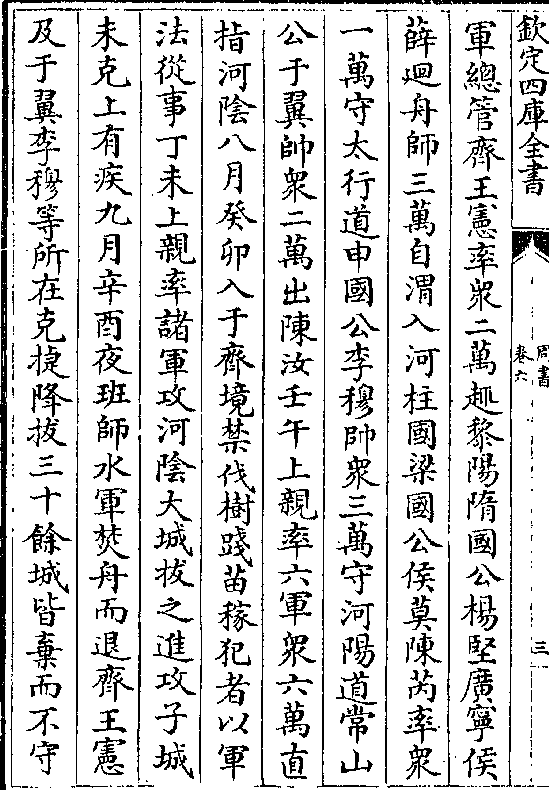 欽定四庫全書
周書
卷六
三
軍總管齊王憲率衆二萬趣黎陽隋國公楊堅廣寧侯
薛迴舟師三萬自渭入河柱國梁國公侯莫陳芮率衆
一萬守太行道申國公李穆帥衆三萬守河陽道常山
公于翼帥衆二萬出陳汝壬午上親率六軍衆六萬直
指河陰八月癸卯入于齊境禁伐樹踐苗稼犯者以軍
法從事丁未上親率諸軍攻河陰大城拔之進攻子城
未克上有疾九月辛酉夜班師水軍焚舟而退齊王憲
及于翼李穆等所在克捷降拔三十餘城皆棄而不守